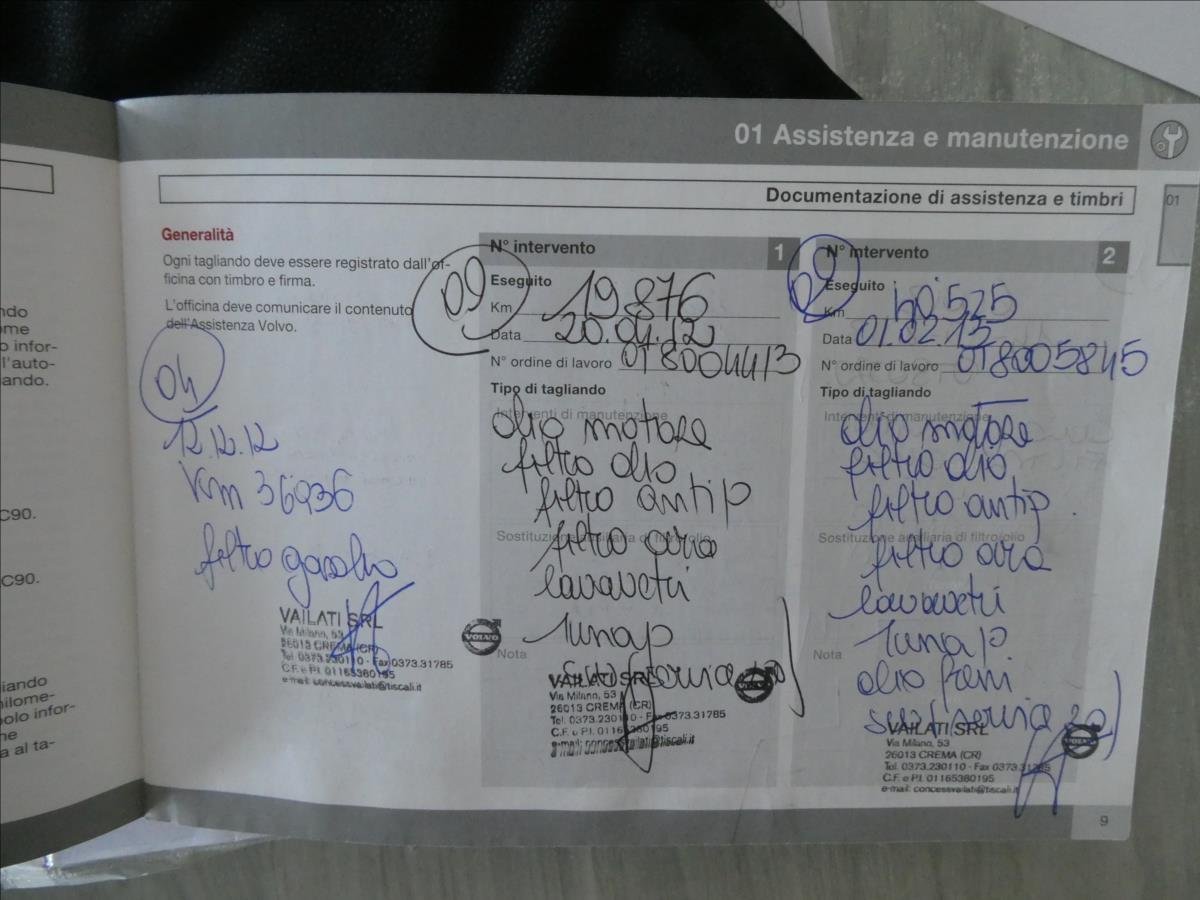 01 Assistenza e manutenzione
Documentazione di assistenza e timbri
01
Generalità
Ogni tagliando deve essere registrato dall'of-
ficina con timbro e firma.
L'officina deve comunicare il contenuto
dell'Assistenza Volvo.
04
12.12.12
Km 36936
filtro gasolio
VAILATI SRL
Via Milano, 53
26013 CREMA (CR)
Tel. 0373.230110 - Fax 0373.31785
C.F. e P.I. 01165380195
e-mail: concessvailati@tiscali.it
VOLVO
N° intervento 1
09
Eseguito
Km 19876
Data 20.04.12
N° ordine di lavoro 018004413
Tipo di tagliando
Interventi di manutenzione
olio motore
filtro olio
filtro antip
Sostituzione ausiliaria di filtro/olio
filtro aria
lavavetri
Nota
VAILATI SRL
Via Milano, 53
26013 CREMA (CR)
Tel. 0373.230110 - Fax 0373.31785
C.F. e P.I. 01165380195
e-mail: concessvailati@tiscali.it
VOLVO
N° intervento 2
09
Eseguito
Km 40525
Data 01.02.13
N° ordine di lavoro 018005845
Tipo di tagliando
Interventi di manutenzione
olio motore
filtro olio
filtro antip.
Sostituzione ausiliaria di filtro/olio
filtro aria
lavavetri
Nota
olio freni
VAILATI SRL
Via Milano, 53
26013 CREMA (CR)
Tel. 0373.230110 - Fax 0373.31785
C.F. e P.I. 01165380195
e-mail: concessvailati@tiscali.it
VOLVO
9
ndo
ome
o infor-
l'auto-
ando.
C90.
C90.
iando
hilome-
olo infor-
ne
a al ta-